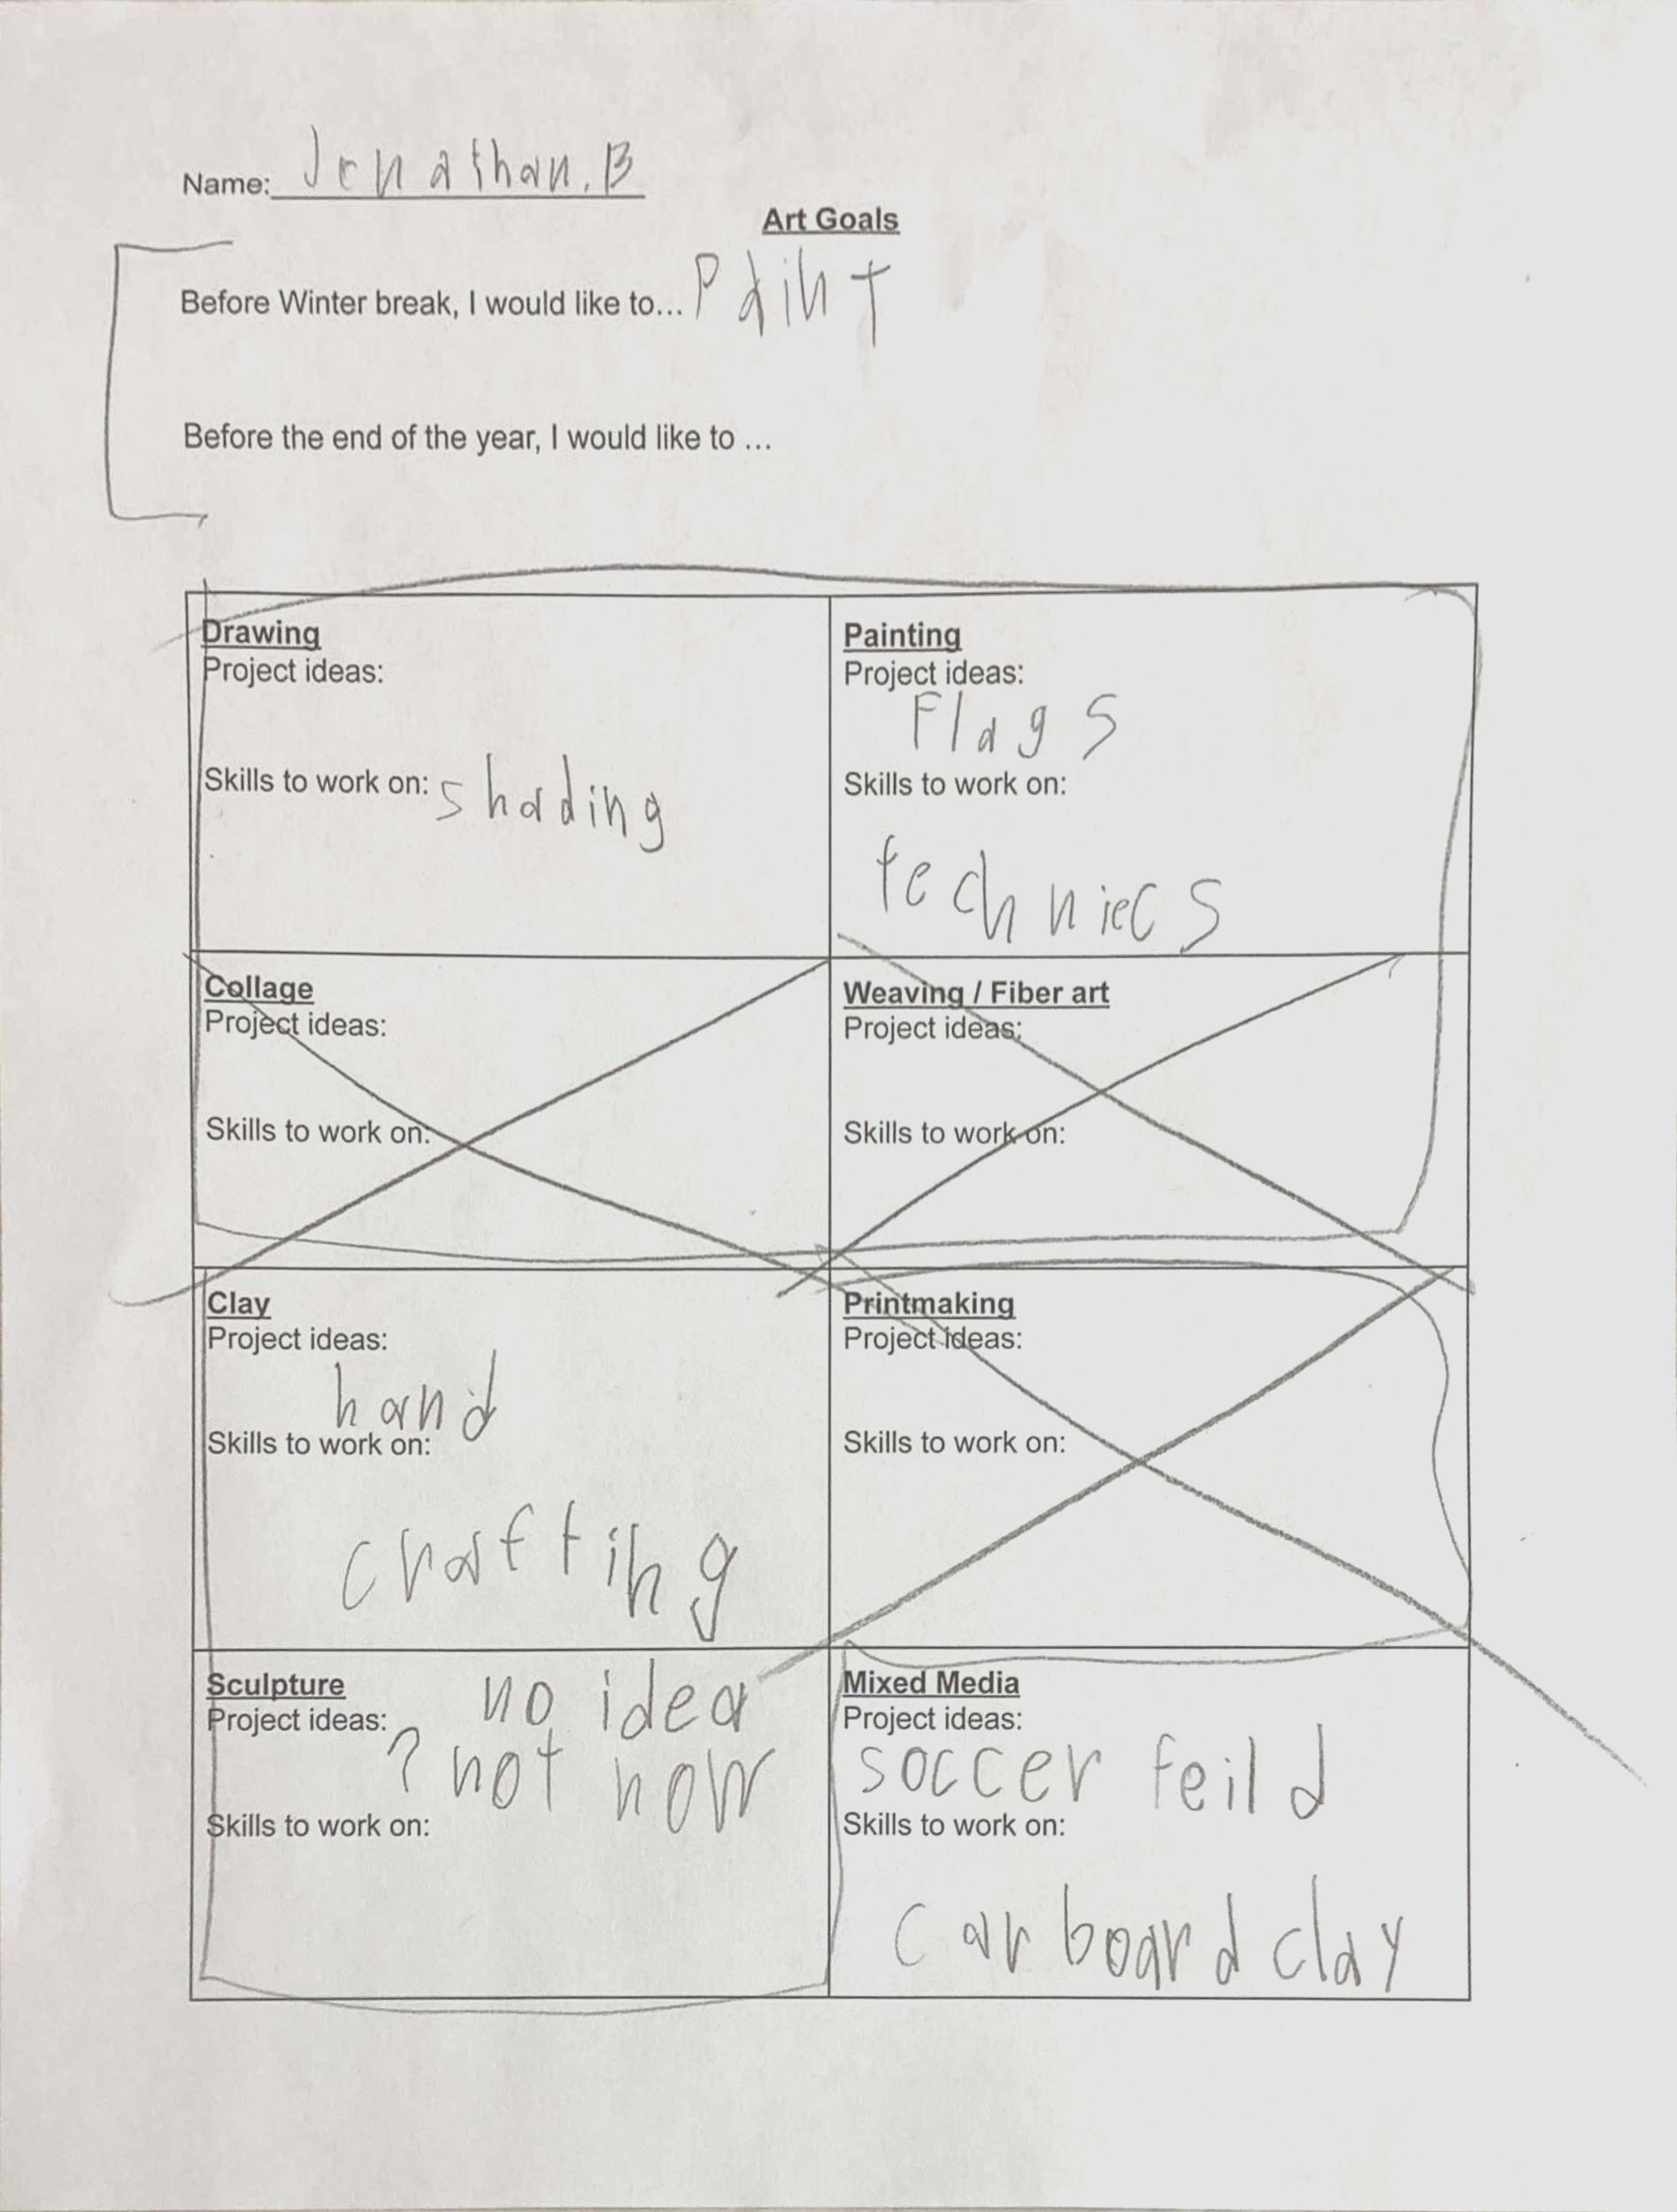 Name: Jonathan.B
Art Goals
Before Winter break, I would like to... Paint
Before the end of the year, I would like to ...
Drawing
Project ideas:
Skills to work on: shading
Painting
Project ideas:
Flags
Skills to work on:
techniecs
Collage
Project ideas:
Skills to work on:
Weaving / Fiber art
Project ideas:
Skills to work on:
Clay
Project ideas:
hand
Skills to work on:
crafting
Printmaking
Project ideas:
Skills to work on:
Sculpture no idea
Project ideas: ? not now
Skills to work on:
Mixed Media
Project ideas:
soccer feild
Skills to work on:
carboard clay